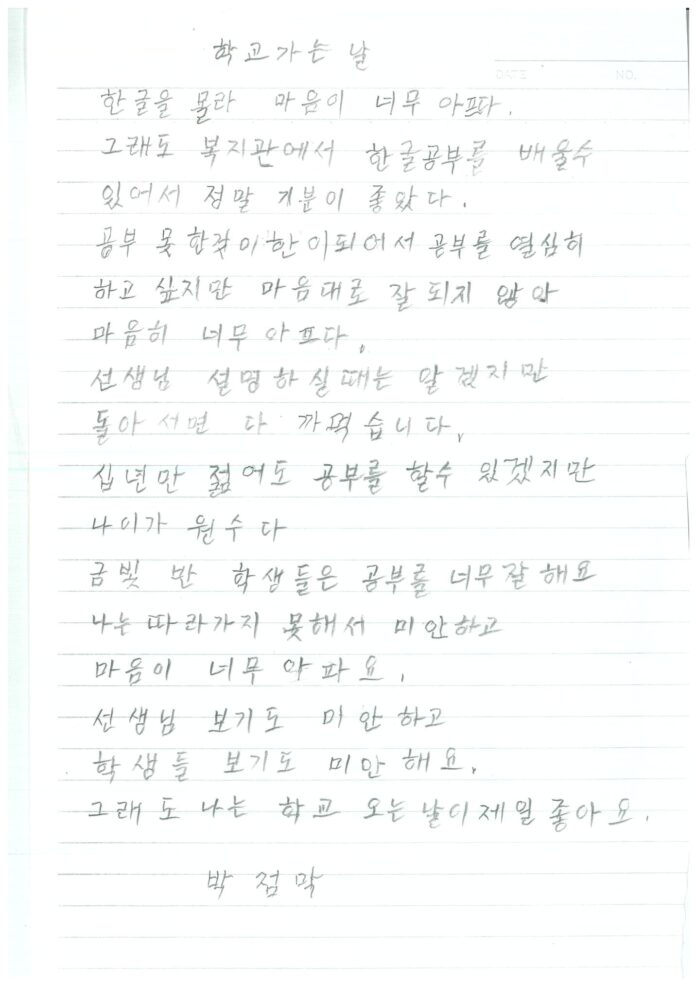 학교가는 날
DATE NO.
한글을 몰라 마음이 너무 아프다.
그래도 복지관에서 한글공부를 배울수
있어서 정말 기분이 좋았다.
공부 못 한것이한이되어서 공부를 열심히
하고 싶지만 마음대로 잘 되지 않아
마음히 너무 아프다,
선생님 설명하실때는 알겠지만
돌아서면 다 까먹습니다,
십년만 젊어도 공부를 할수 있겠지만
나이가 원수다
금빛 반 학생들은 공부를 너무잘해요
나는따라가지 못해서 미안하고
마음이 너무 아파요,
선생님 보기도 미안하고
학생들 보기도 미안해요,
그래도나는 학교 오는날이제일좋아요.
박점막